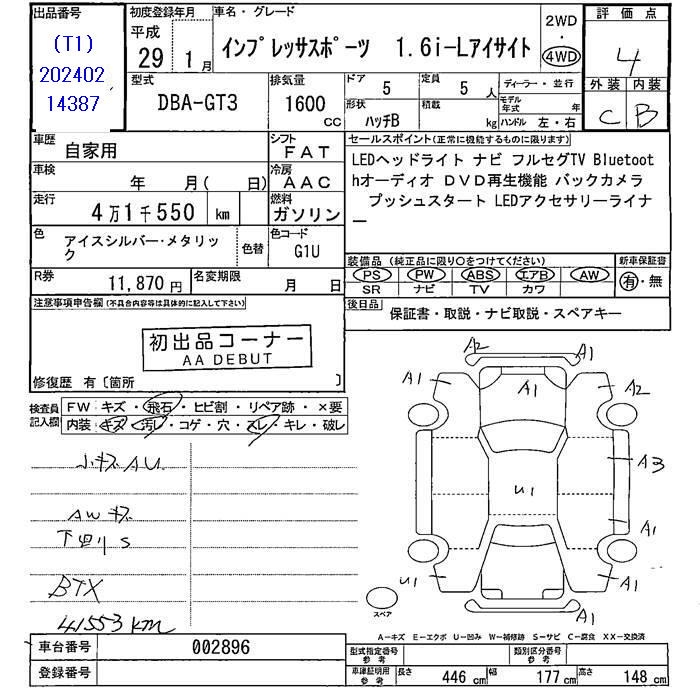 出品番号
(T1)
202402
14387
初度登録年月
平成
29 1 月
車名・グレード
インプレッサスポーツ 1.6i-Lアイサイト
2WD
・
4WD
評価点
4
外装 内装
C B
型式
DBA-GT3
排気量
1600
CC
ドア
5
定員
5 人
形状
ハッチB
積載
kg
ディーラー・並行
モデル年式 年
ハンドル 左・右
車歴
自家用
シフト
FAT
車検
年 月( 日)
冷房
AAC
走行
4万1千550 km
燃料
ガソリン
色
アイスシルバー・メタリック
色替
色コード
G1U
R券
11,870 円
名変期限
月 日
セールスポイント(正常に機能するものに限ります)
LEDヘッドライト ナビ フルセグTV Bluetoot
hオーディオ DVD再生機能 バックカメラ
プッシュスタート LEDアクセサリーライナ
ー
装備品 (純正品に限り○をつけてください)
PS PW ABS エアB AW
SR ナビ TV カワ
新車保証書
有・無
後日品
保証書・取説・ナビ取説・スペアキー
注意事項申告欄(不具合内容等は具体的に記入して下さい)
初出品コーナー
AA DEBUT
修復歴 有〔箇所 〕
検査員
記入欄
FW キズ・飛石・ヒビ割・リペア跡・×要
内装 キズ・汚レ・コゲ・穴・スレ・キレ・破レ
小キズAU
AWキズ
下回りS
BTX
41553km
A2
A1
A1
A1
A2
A3
U1
A1
U1
A1
A1
スペア
A-キズ E-エクボ U-凹み W-補修跡 S-サビ C-腐食 XX-交換済
車台番号
002896
登録番号
型式指定番号
参考
類別区分番号
参考
車庫証明用
参考
長さ 446 cm 幅 177 cm 高さ 148 cm